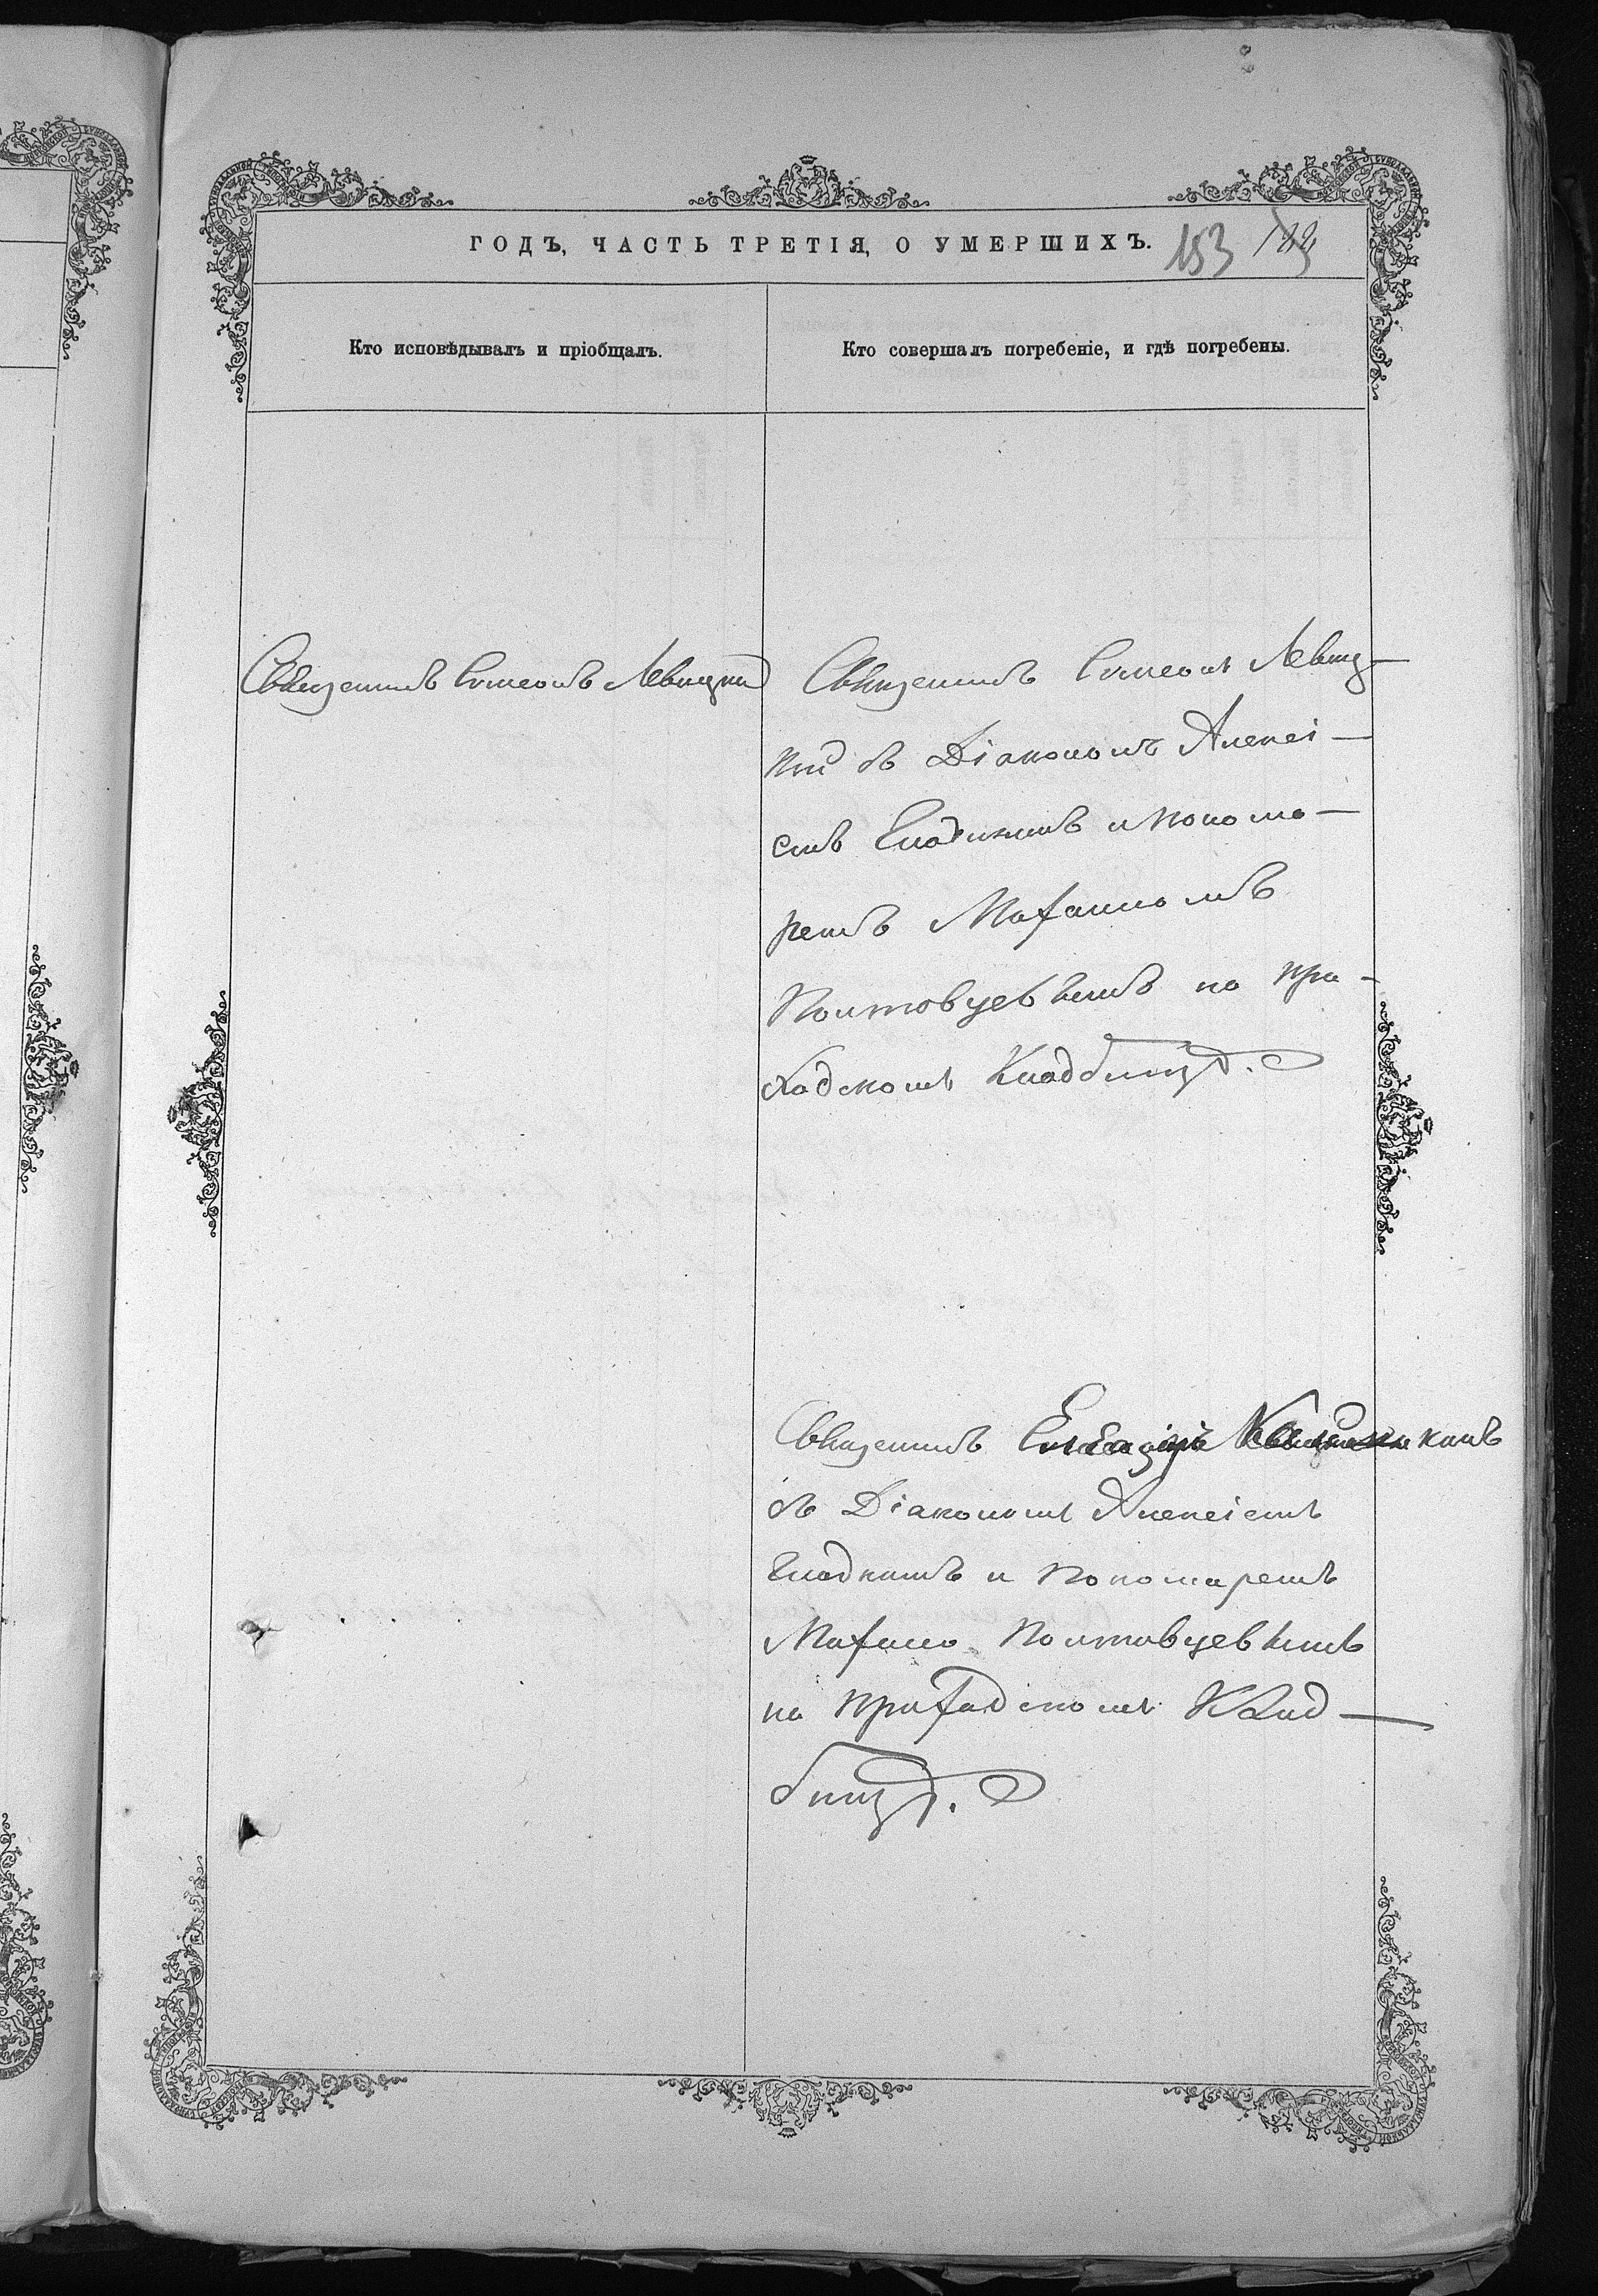 ГОДЪ, ЧАСТЬ ТРЕТІЯ, О УМЕРШИХЪ. 153
Кто исповѣдывалъ и пріобщалъ.
Кто совершалъ погребеніе, и гдѣ погребены.
Священникъ Симеонъ Левицкій
Священникъ Симеонъ Левиц-
кій съ Діакономъ Алексі-
емъ Гладкимъ и понома-
ремъ Михаиломъ
Полтовцевымъ на при-
ходскомъ Кладбищѣ.
Священникъ
съ Діакономъ Алексіемъ
Гладкимъ и Пономаремъ
Михаило Полтавцевымъ
на приходскомъ Клад-
бищѣ.